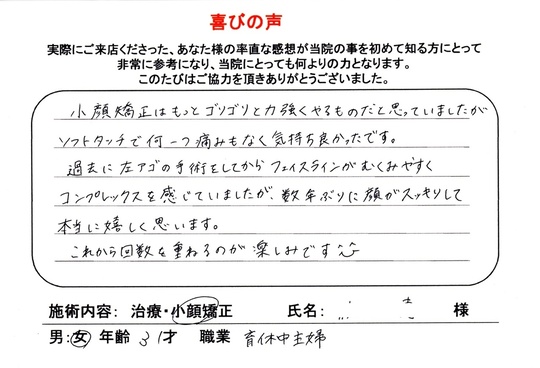 喜びの声
実際にご来店くださった、あなた様の率直な感想が当院の事を初めて知る方にとって
非常に参考になり、当院にとっても何よりの力となります。
このたびはご協力を頂きありがとうございました。
小顔矯正はもっとゴリゴリと力強くやるものだと思っていましたが
ソフトタッチで何一つ痛みもなく気持ち良かったです。
過去に左アゴの手術をしてからフェイスラインがむくみやすく
コンプレックスを感じていましたが、数年ぶりに顔がスッキリして
本当に嬉しく思います。
これから回数を重ねるのが楽しみです
施術内容: 治療・小顔矯正 氏名: 様
男:女 年齢 31才 職業 育休中主婦